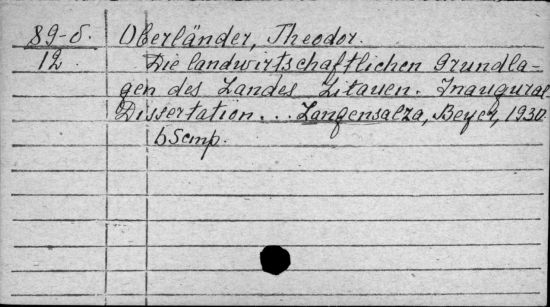 89-5. Oberländer, Theodor.
12. Die landwirtschaftlichen Grundla-
gen des Landes Litauen. Inaugural
Dissertation... Langensalza, Beyer, 1930.